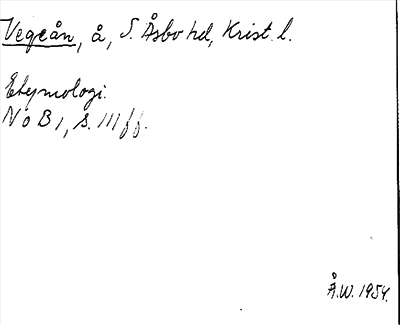 Vegeån, å, S. Åsbo hd, Krist. l.
Etymologi.
NoB 1, s. 111 ff.
Å.W. 1954.